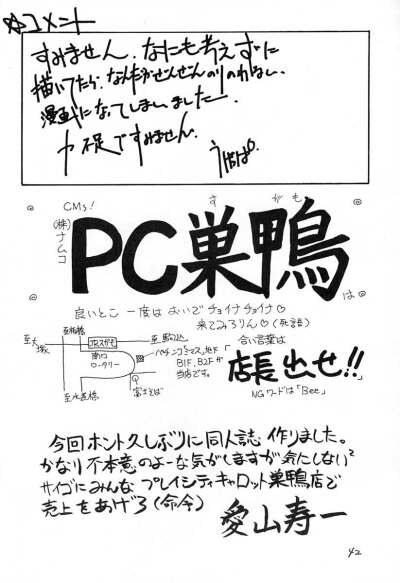 ☆コメント
すみません、なにも考えずに
描いてたら、なんだかぜんぜんのりのわるい、
漫画になってしまいました─
力不足ですみません。
うぱぱ。
CMs!
(株)ナムコ
すがも
PC巣鴨
は
良いとこ 一度は おいで チョイナチョイナ♡
来てみろりん♡(死語)
至大塚
至板橋
JRスガモ
南口
ロータリー
至駒込
至水道橋
富士そば
パチンコミマス、地下
B1F、B2Fが
当店です。
合い言葉は
「店長出せ!!」
NGワードは「Bee」
今回ホント久しぶりに同人誌作りました。
かなり不本意のよーな気がしますが気にしない²
サイゴにみんなプレイシティキャロット巣鴨店で
売上をあげろ(命令)
愛山寿一
42